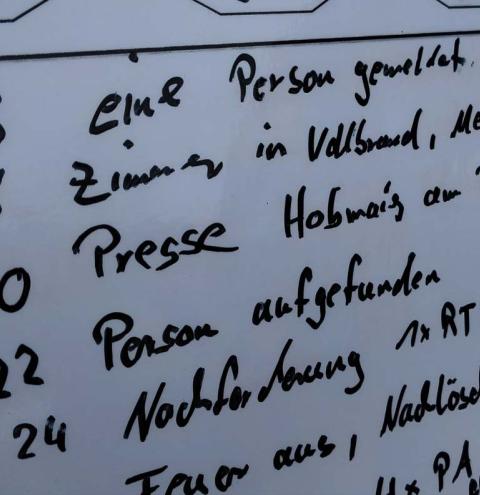 eine Person gemeldet
Zimmer in Vollbrand, Me
Presse Hobmaig am
Person aufgefunden
22 Nachforderung 1x RT
24 Feuer aus, Nachlösc
4x PA